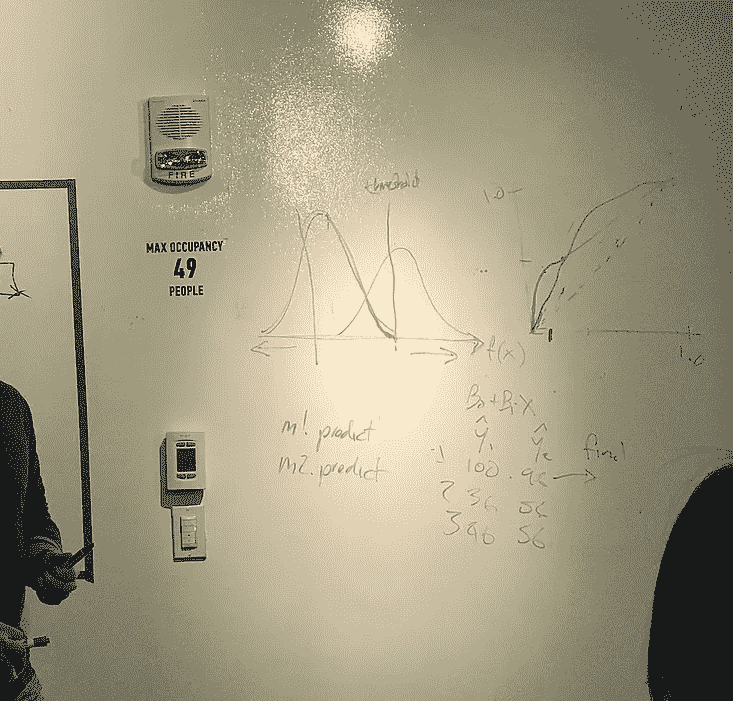 FIRE
MAX OCCUPANCY
49
PEOPLE
threshold
1.0
f(x)
1.0
B₀+B₁X
m1.predict
m2.predict
ŷ₁ ŷ₂
1 100 .96 → final
2 36 56
3 96 56